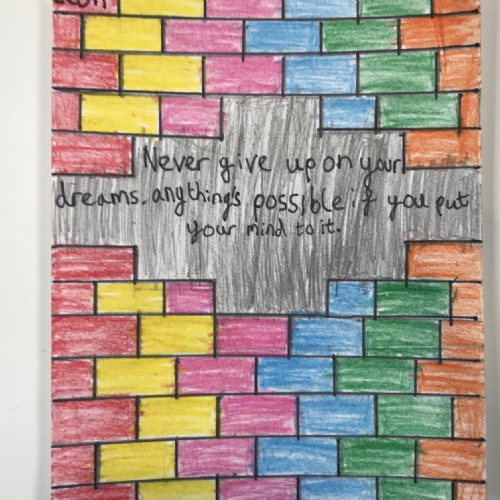 Never give up on your
dreams. anything's possible if you put
your mind to it.